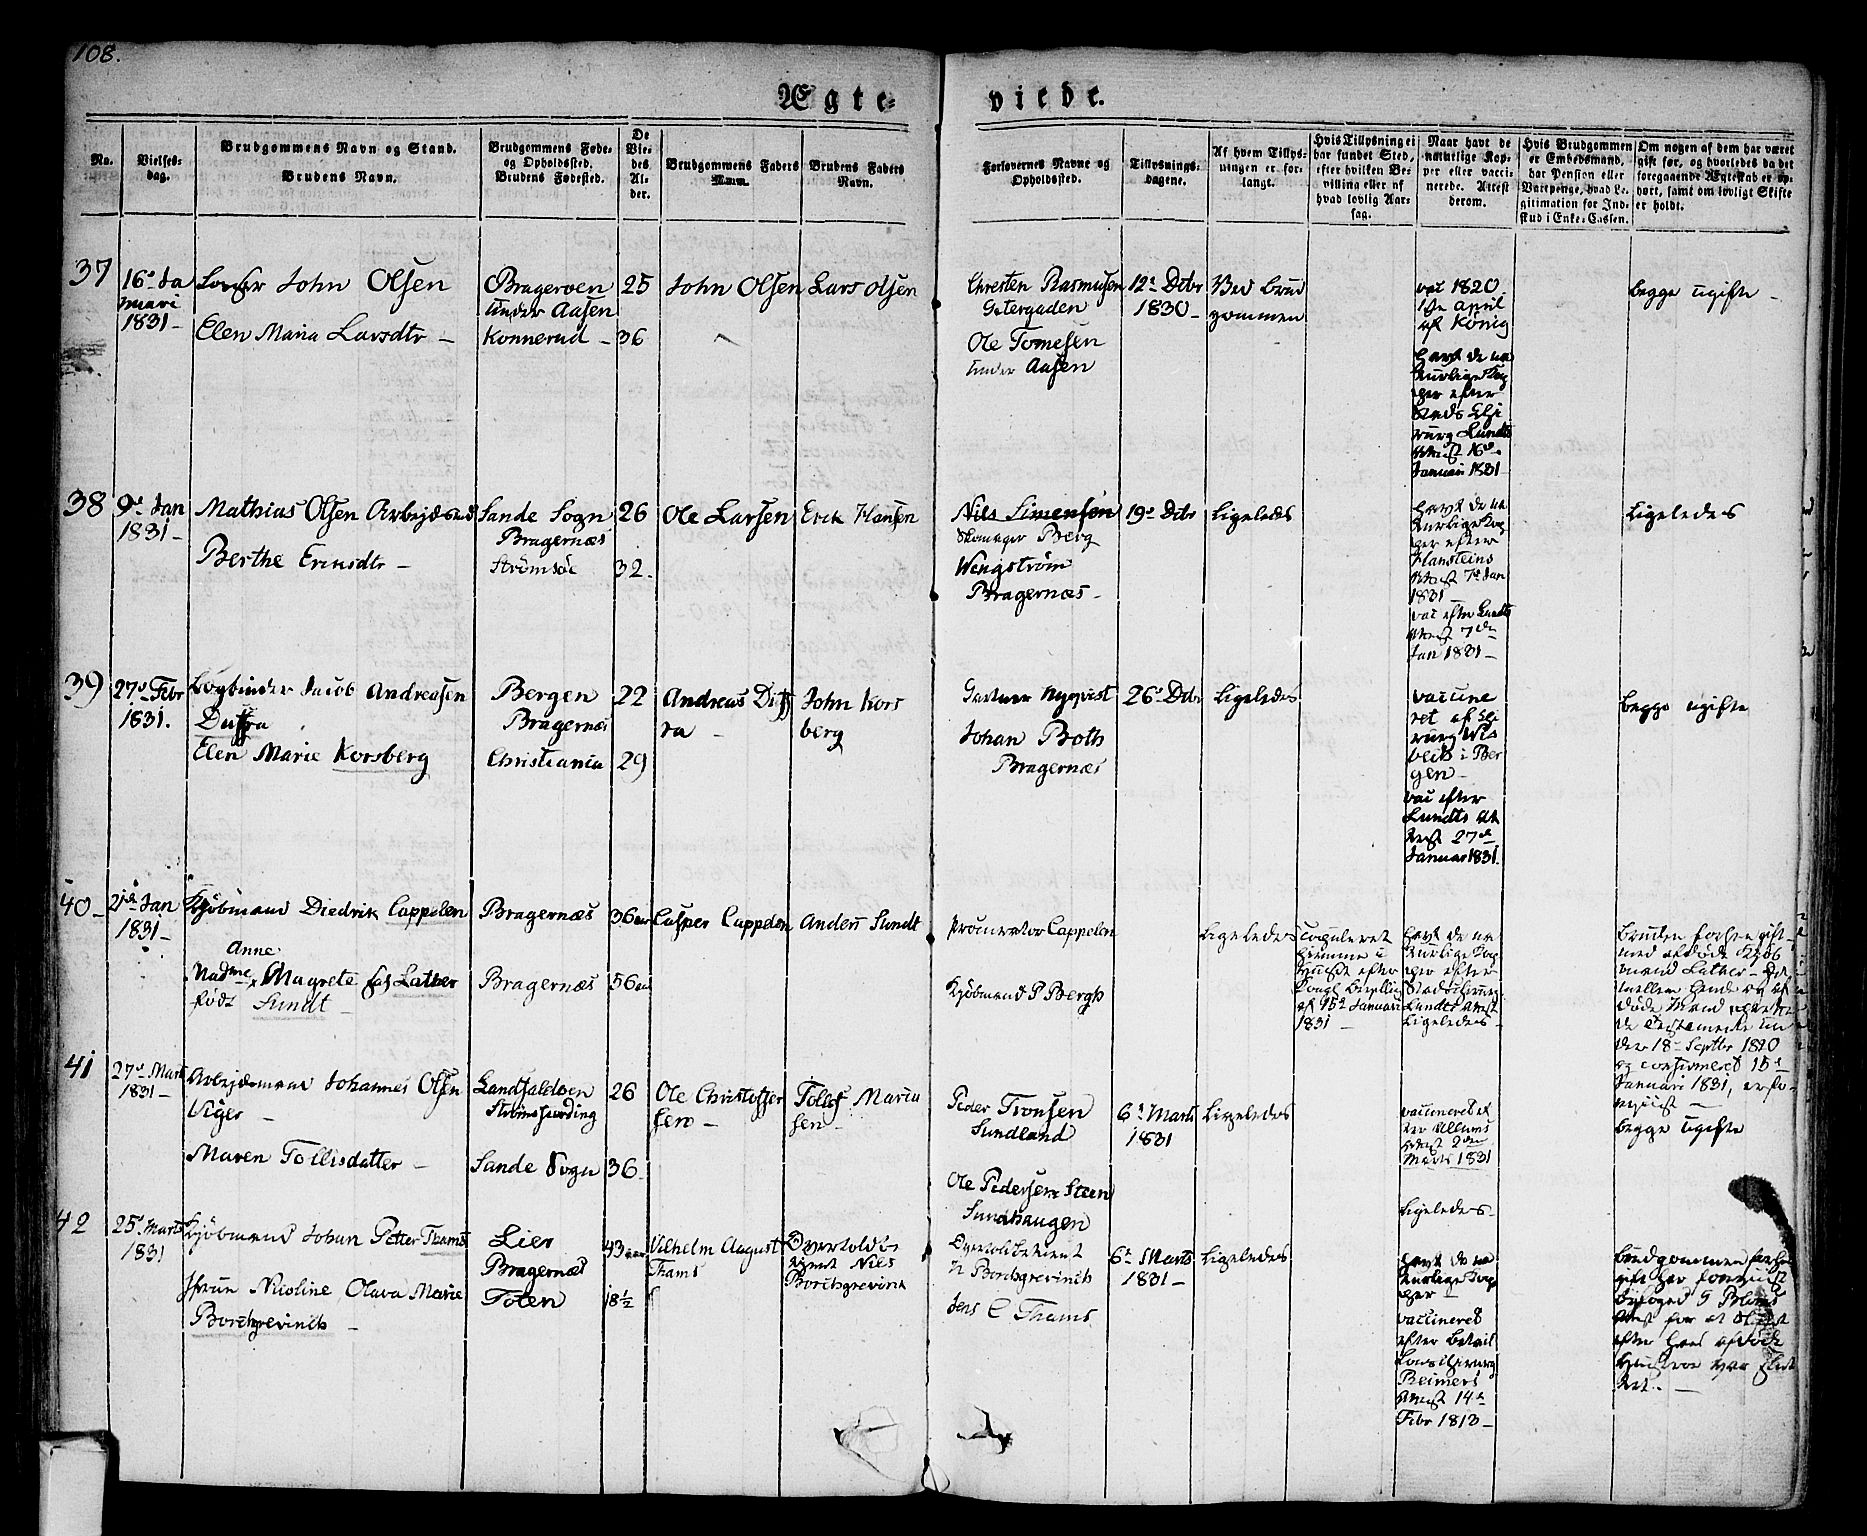 108.
Ægte-
viede.
No.
Vielses-
dag.
Brudgommens Navn og Stand.
Brudens Navn.
Brudgommens Føde-
og Opholdssted.
Brudens Fødested.
De
Vie-
des
Al-
der.
Brudgommens Faders
Navn.
Brudens Faders
Navn.
Forlovernes Navne og
Opholdssted.
Tillysnings-
dagene.
Af hvem Tillys-
ningen er for-
langt.
Hvis Tillysning ei
har fundet Sted,
efter hvilken Be-
villing eller af
hvad lovlig Aar-
sag.
Naar havt de
naturlige Kop-
per eller vacci-
nerede. Attest
derom.
Hvis Brudgommen
er Embedsmand,
har Pension eller
Vartpenge, hvad Le-
gitimation for Ind-
skud i Enke-Cassen.
Om nogen af dem har været
gift før, og hvorledes da det
foregaaende Ægteskab er op-
hørt, samt om lovligt Skifte
er holdt.
37
16de Ja
nuari
1831
John Olsen
Elen Maria Larsdtr
Brageroen
under Aasen
Konnerud
25
36
John Olsen
Lars Olsen
Chresten Rasmusen
Ole Tomesen
under Aasen
12te Decbr
1830
Ved Brud
gommen
vac 1820
april
af König
havt de na
turlige Kop
per efter
Stads Chi
rurg Lundts
Attest 16de
Januar 1831
begge ugifte
38
9de Jan
1831
Mathias Olsen Arbejdsmd
Berthe Ericsdtr
Sande Sogn
Bragernæs
Strømsøe
26
32.
Ole Larsen
Erik Hansen
Nils Simensøn
Berg
Wengstrøm
Bragernæs
19de Decbr
Ligeledes
havt de na
turlige Kop
per efter
Hansteins
Attest 7de Jan
1831
vac efter Lundts
Attest 7de
Jan 1831
Ligeledes
39
27de Febr
1831.
Bogbinder Jacob Andreasen
Elen Marie Korsberg
Bergen
Bragernæs
Christiania
22
29
Andreas
John Kors
berg
Gartner Nyqvist
Johan Both
Bragernæs
26de Decbr
Ligeledes
vaccine
ret af Chi
rurg
i Ber
gen
vac efter
Lundts At
test 27de
Januar 1831.
begge ugifte
40
21de Jan
1831
Kjøbmand Diedrik Cappelen
Anne
Madme Magrete Lather
født Sundt
Bragernæs
Bragernæs
36 aar
56 aar
Casper Cappelen
Anders Sundt
Cappelen
Kjøbmand P Bergh
Ligeledes
Copuleret
hjemme i
Huset efter
Kongl Bevilling
af 15de Januari
1831
havt de na
turlige Kop
per efter
Stadschirurg
Lundts Attest
Ligeledes
Bruden forhen gift
med afdøde Kjøb
mand Lather
mellem hende og af
døde Mand oprette
de Testamente un
der 18de Septbr 1820
og confirmeret 15de
Januari 1831,
41
27de Marts
1831
Arbejdsmand Johannes Olsen
Viger
Maren Tollisdatter
Landfaldøen
Sande Sogn
26
36
Ole Christoffer
sen
Tollef Maria
sen
Peder Tronsen
Sundland
Ole Pedersen Steen
Sundhaugen
6te Marts
1831
Ligeledes
vaccineret ef
ter
Attest 2den
Marts 1831
Ligeledes
begge ugifte
42
25de Marts
1831
Kjøbmand Johan Petter Thams
Jfrue Nicoline Olava Marie
Borchgrevinck
Lier
Bragernæs
Toten
43 aar
18½
Vilhelm August
Thams
Overtoldbe
tjent Nils
Borchgrevink
Overtoldbetient
N Borchgrevinch
Jens C Thams
6te Marts
1831
Ligeledes
havt de na
turlige Kop
per
vaccineret
efter
Reimers
Attest 14de
Febr 1813
Brudgommen forhen
gift har
Byfoged Bloms
Attest for at Skiftet
efter hans afdøde
Hustrue var slut
tet.